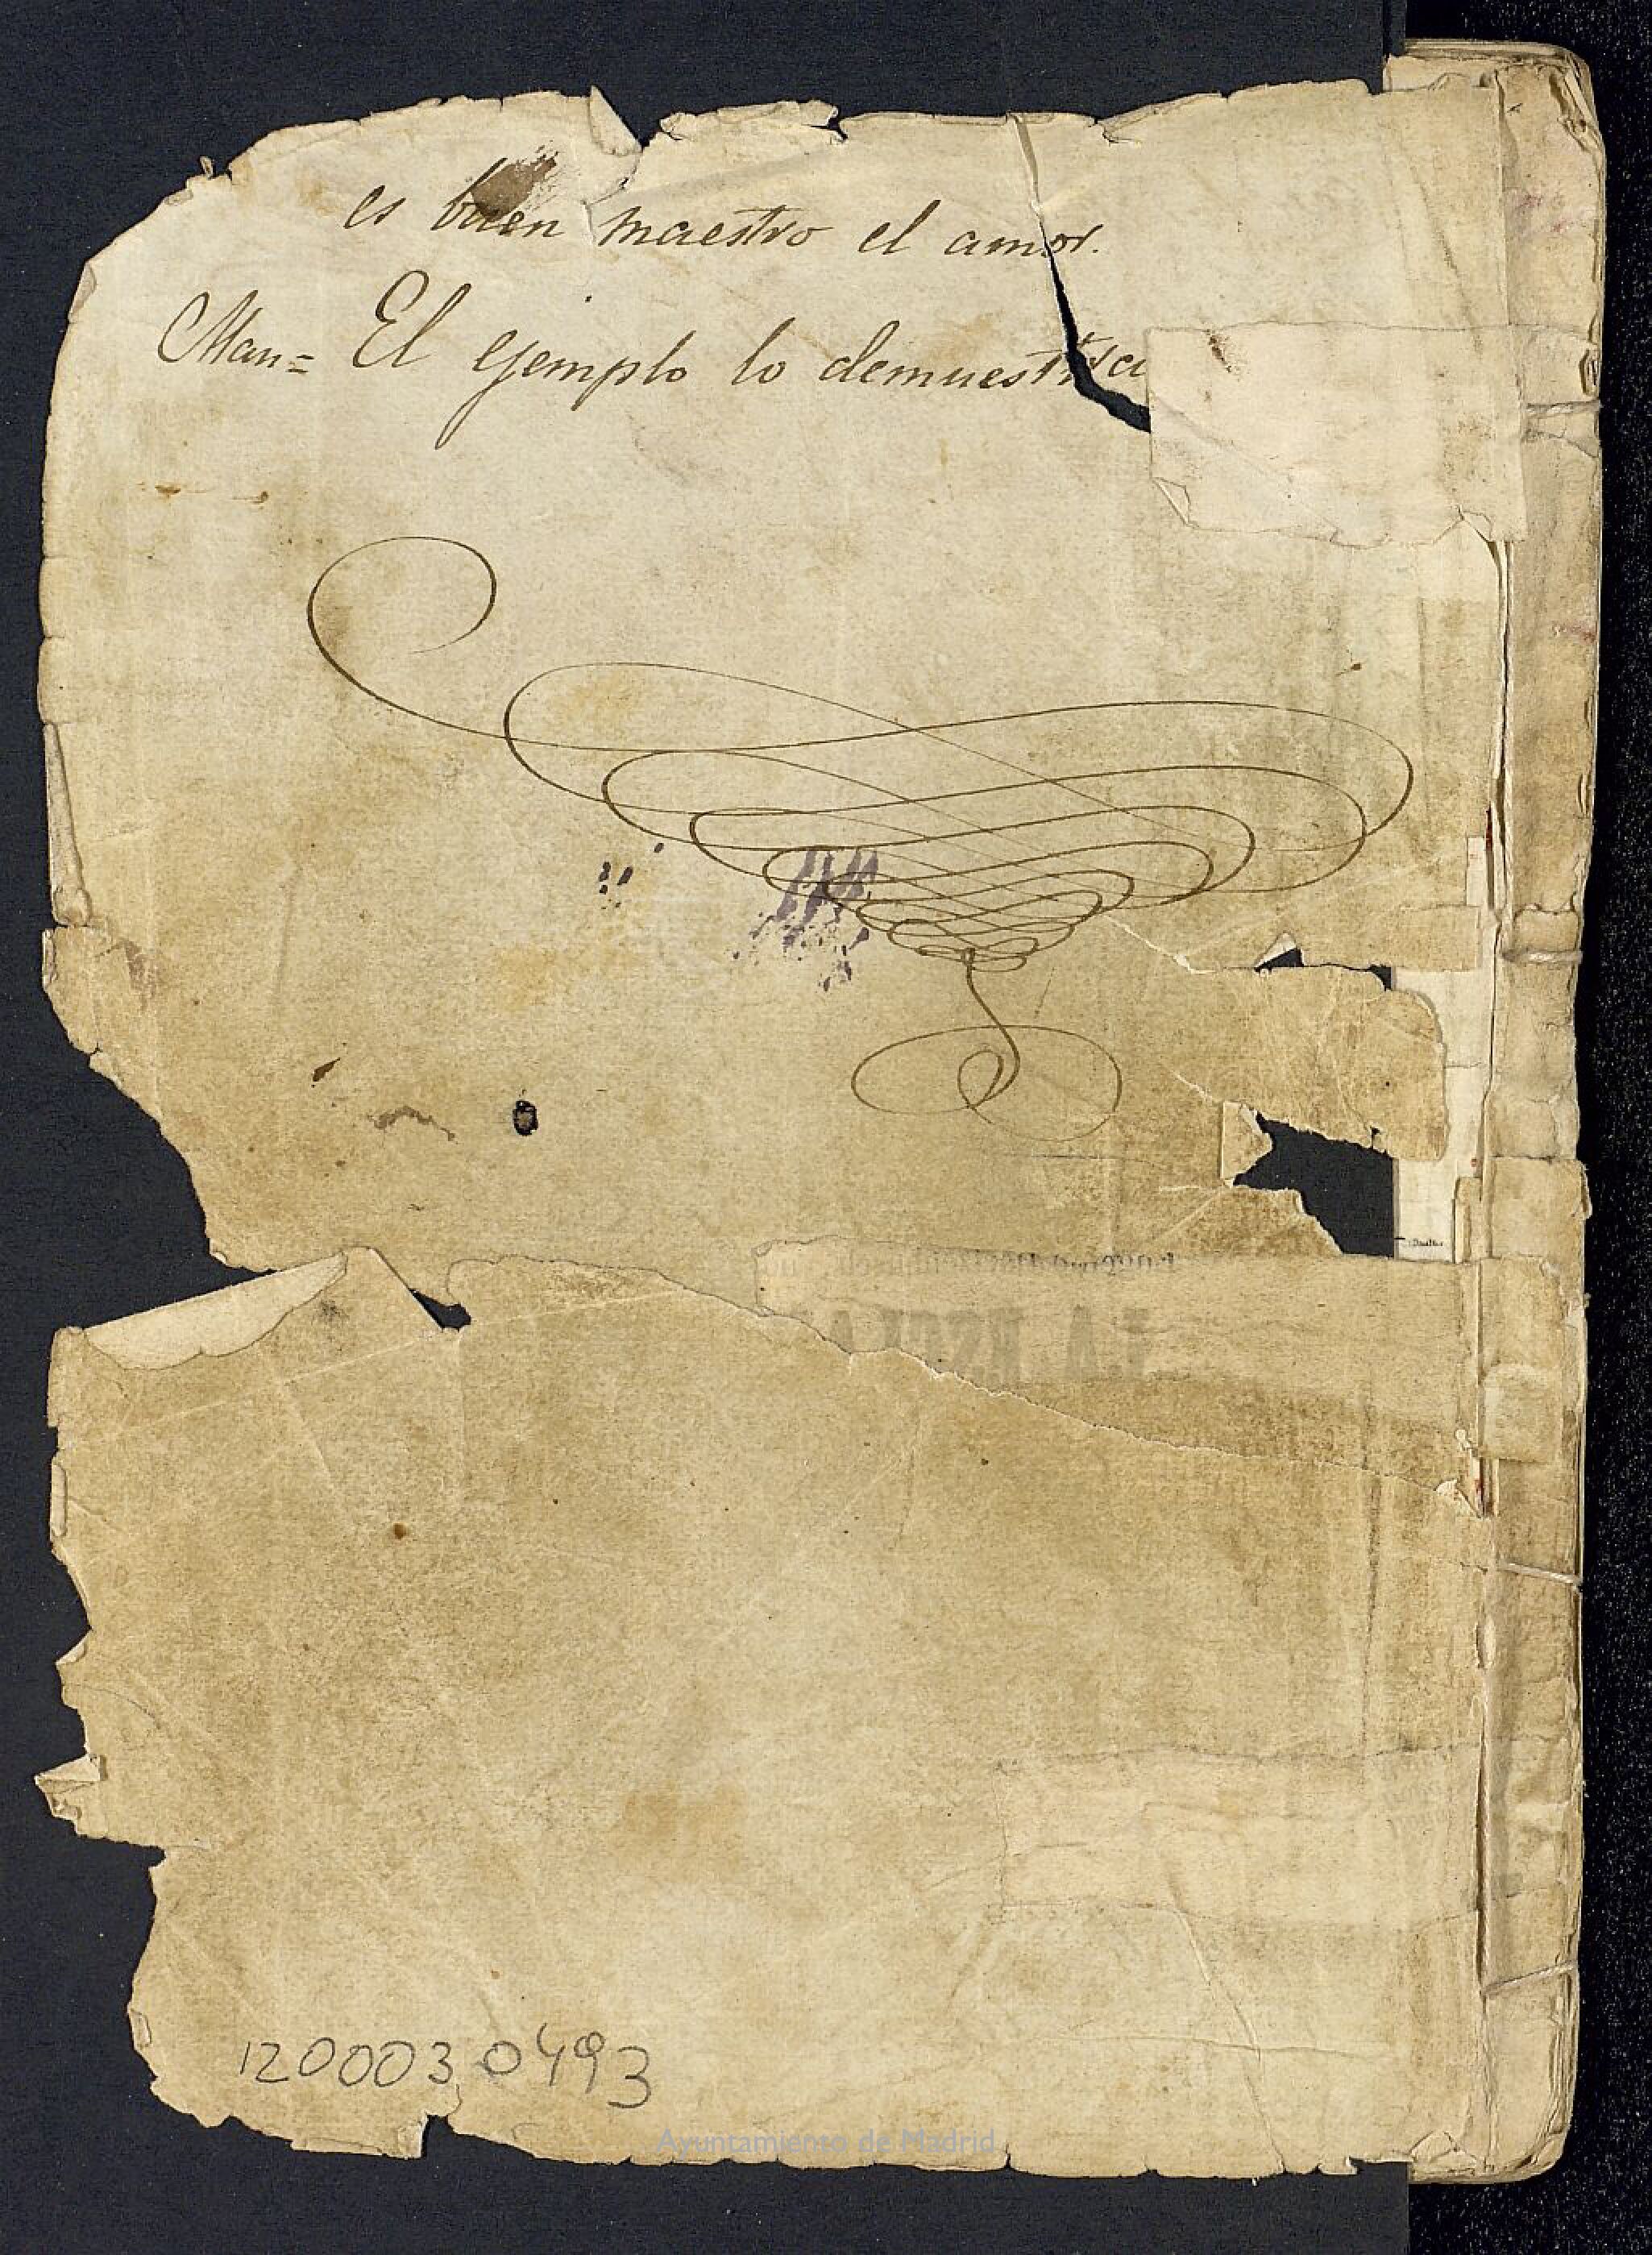 es buen maestro el amor.
Man= El ejemplo lo demuestra
LA ESCLA
1200030493
Ayuntamiento de Madrid